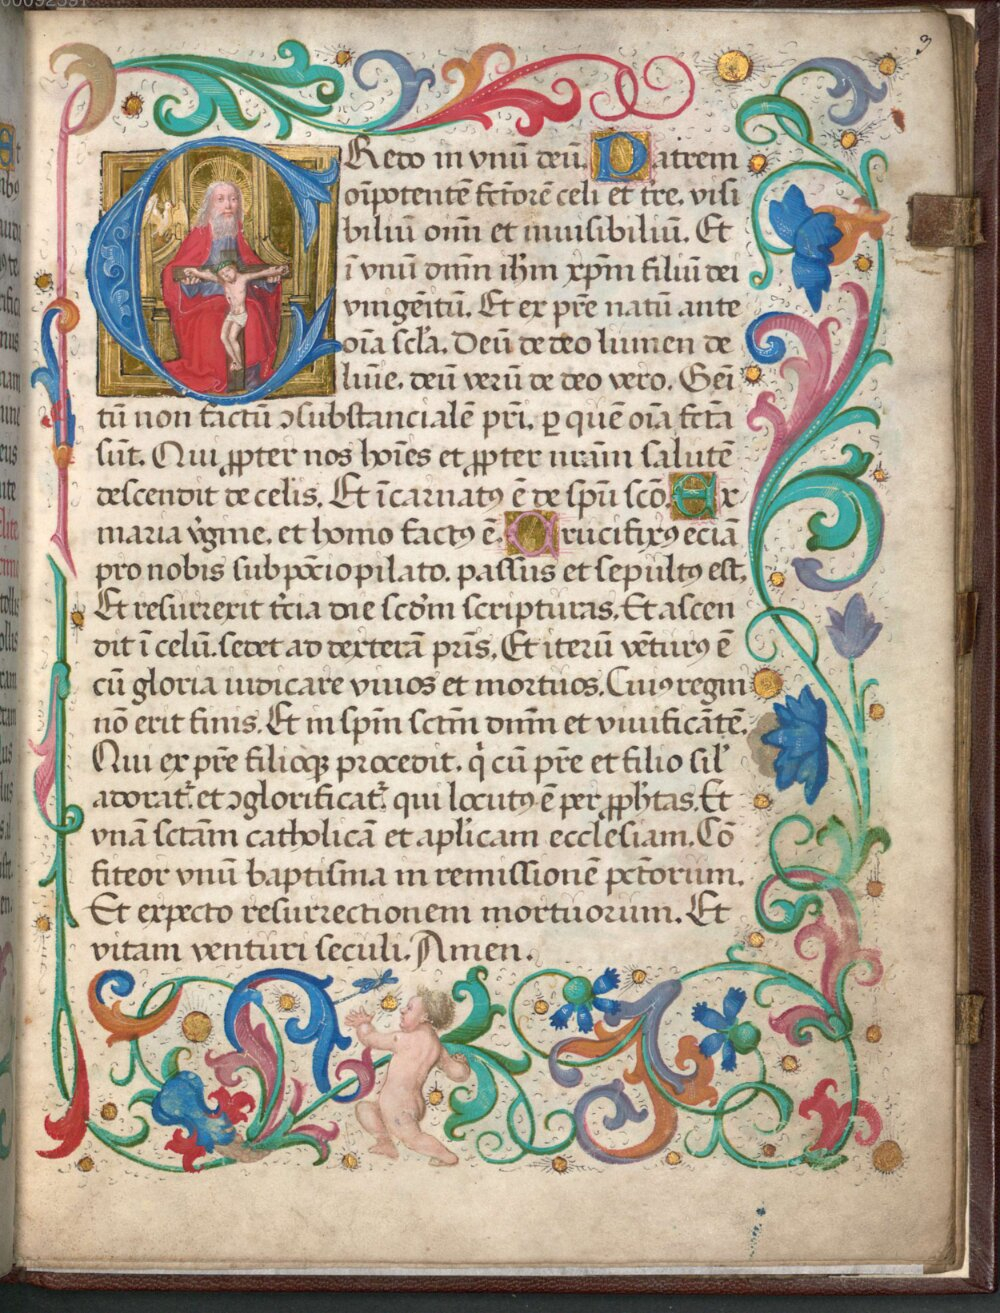 CRedo in vnū deū. Patrem
oīpotentē fctorē celi et tre. visi
biliū oīm et inuisibiliū. Et
ī vnū dnm ihm xpm filiū dei
vnigēitū. Et ex pre natū ante
oīa scla. Deū de deo lumen de
lūīe. deū verū de deo vero. Geī
tū non factū ꝯsubstancialē pri. ꝑ quē oīa fcta
sūt. Qui ꝓpter nos hoīes et ꝓpter nrām salutē
descendit de celis. Et īcarnatꝰ ē de spū scō. Ex
maria v̇gine. et homo factꝰ ē. Crucifixꝰ eciā
pro nobis sub pōcio pilato. passus et sepultꝰ est.
Et resurrexit t̄cia die scdm scripturas. Et ascen
dit ī celū. sedet ad dexterā pris. Et iterū vēturꝰ ē
cū gloria iudicare viuos et mortuos. Cuiꝰ regni
nō erit finis. Et in spm sctm dnm et viuificātē.
Qui ex pre filioqꝫ procedit. q̇ cū pre et filio sil'
adorat᷑. et ꝯglorificat᷑. qui locutꝰ ē per ꝓphtas. Et
vnā sctām catholicā et aplicam ecclesiam. Cō
fiteor vnū baptisma in remissionē pctorum.
Et expecto resurrectionem mortuorum. Et
vitam venturi seculi. Amen.